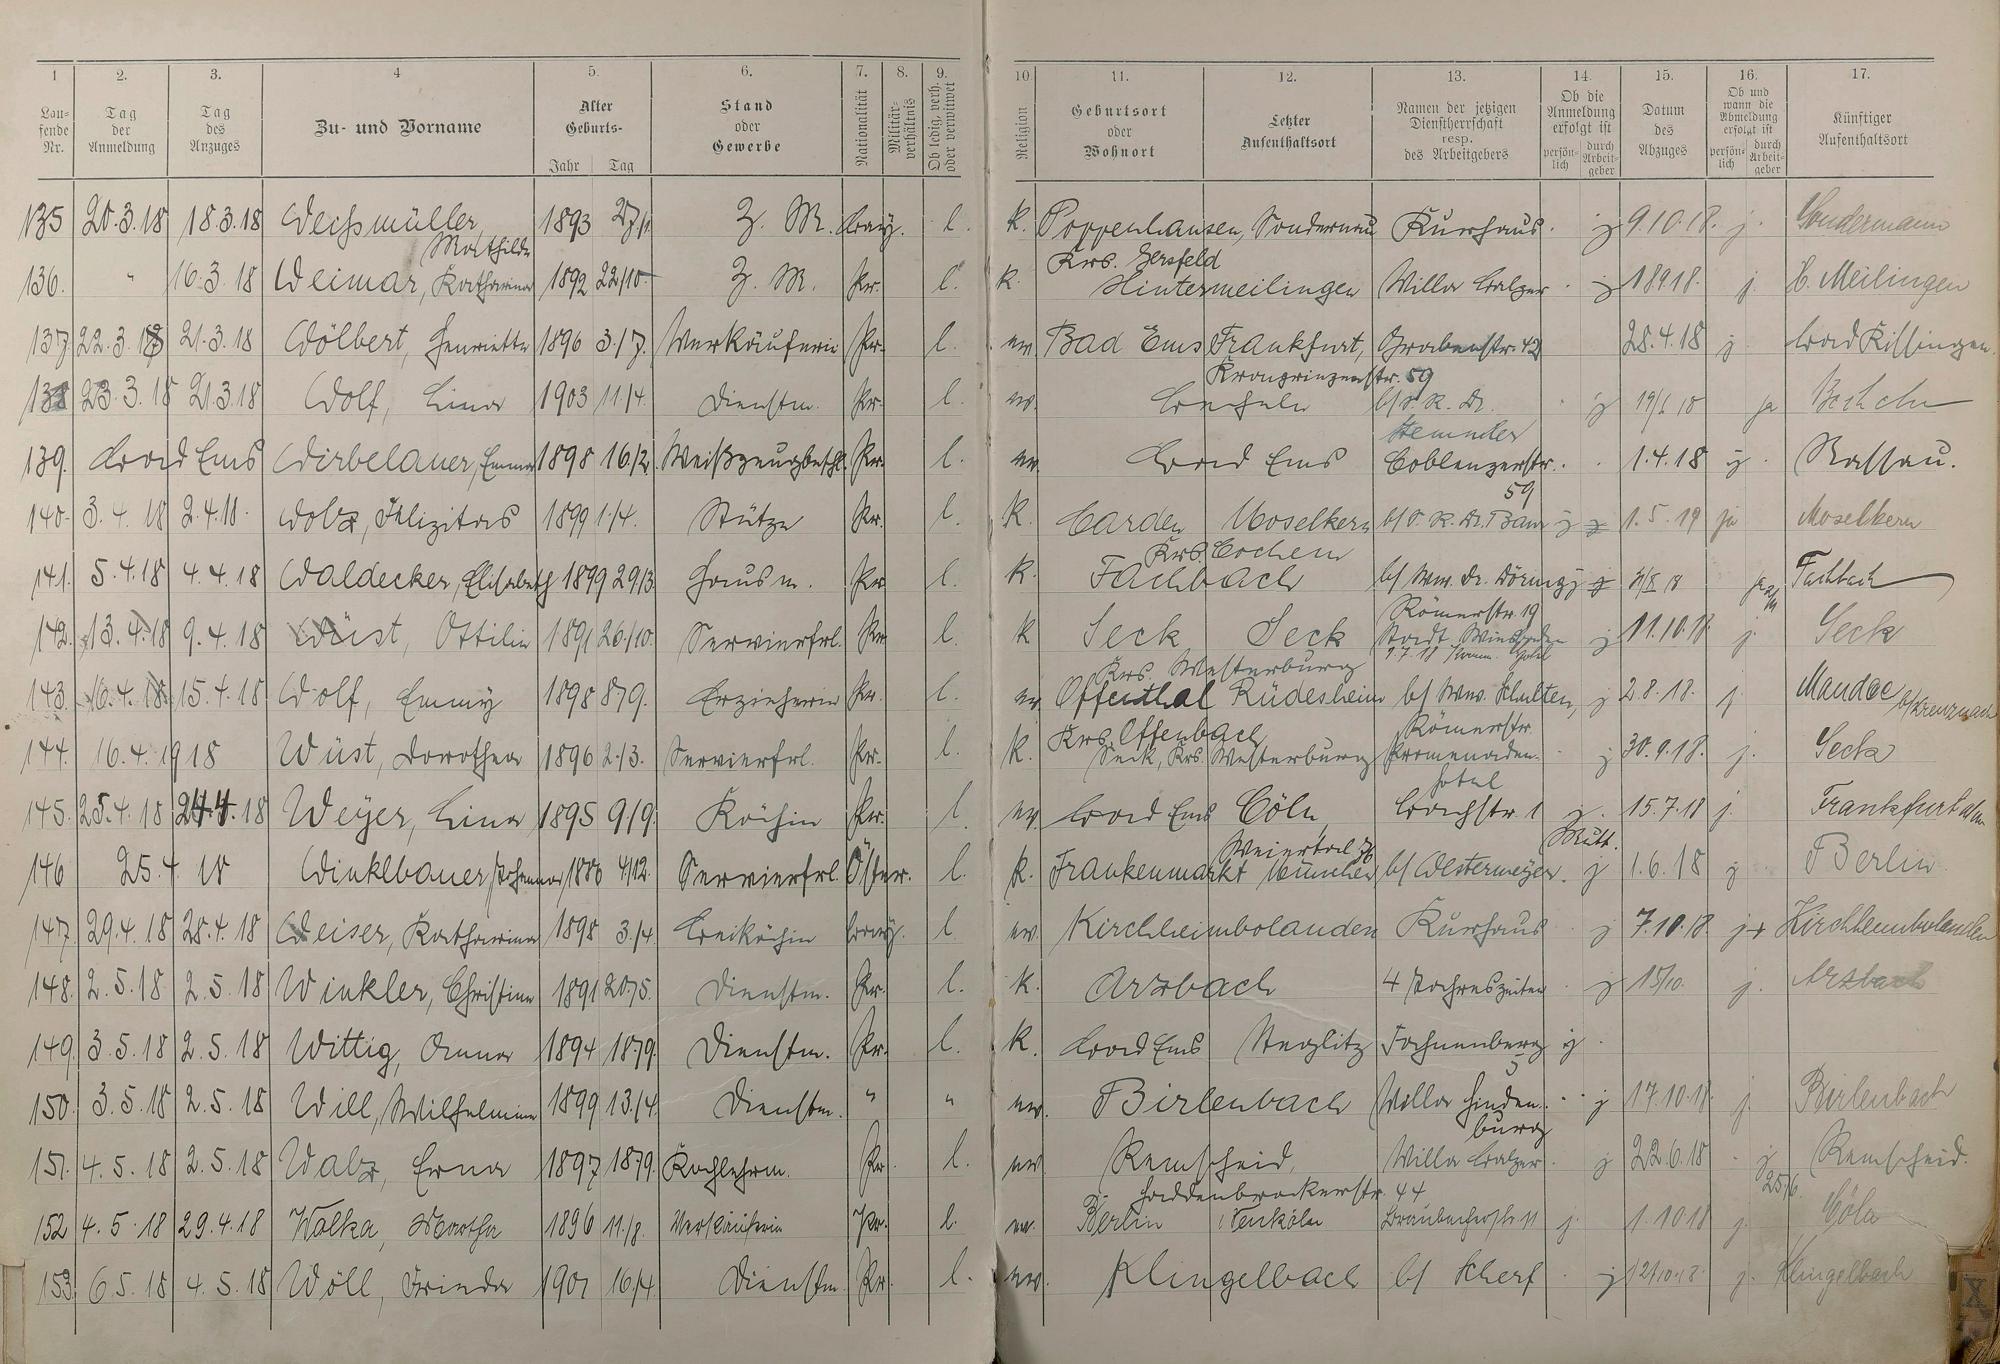 1 2. 3. 4 5. 6. 7. 8. 9. 10. 11. 12. 13. 14. 15. 16. 17.
Lau-
fende
Nr.
Tag
der
Anmeldung
Tag
des
Anzuges
Zu- und Vorname
Alter
Geburts-
Jahr Tag
Stand
oder
Gewerbe
Nationalität
Militär-
verhältnis
Ob ledig, verh.
oder verwitwet
Religion
Geburtsort
oder
Wohnort
Letzter
Aufenthaltsort
Namen der jetzigen
Dienstherrschaft
resp.
des Arbeitgebers
Ob die
Anmeldung
erfolgt ist
persön-
lich
durch
Arbeit-
geber
Datum
des
Abzuges
Ob und
wann die
Abmeldung
erfolgt ist
persön-
lich
durch
Arbeit-
geber
Künftiger
Aufenthaltsort
135 20.3.18 18.3.18 Weißmüller, 1893 Z. M. Bay. l. k. Poppenhausen, Sondernau Kurhaus. j 9.10.18. j.
Mathilde Krs. Gersfeld
136. " 16.3.18 Weimar, Katharina 1892 22/10. Z. M. Pr. l. k. Hintermeilingen Villa Balzer j 18.9.18. j. H. Meilingen
137. 22.3.18 21.3.18 Wölbert, Henriette 1896 3./7. Verkäuferin Pr. l. ev. Bad Ems Frankfurt, Grabenstr. 42 28.4.18 j Bad Kissingen.
Kronprinzenstr. 59
138 23.3.18 21.3.18 Wolf, Lina 1903 11./4. Dienstm. Pr. l. ev. Becheln b/ S. R. Dr. j ja Becheln
Stemmler
139. Bad Ems Wirbelauer, Emma 1898 16./2. Weißzeugbeschl. Pr. l. ev. Bad Ems Coblenzerstr. 1.4.18 j. Nassau.
59
140. 3.4.18 2.4.18. Wolz, Felizitas 1899 1./4. Stütze Pr. l. k. Carden Moselkern b/ S. R. Dr. j 1.5.19 ja Moselkern
Krs. Cochem
141. 5.4.18 4.4.18 Waldecker, Elisabeth 1899 29/3. Hausm. Pr. l. k. Fachbach b/ Ww. Dr. Döring j Fachbach
Römerstr. 19
142. 13.4.18 9.4.18 Wüst, Ottilie 1891 26./10. Servierfrl. Pr. l. k Seck Seck Stadt Wiesbaden j 11.10.18. j. Seck
Krs. Westerburg
143. 16.4.18 15.4.18 Wolf, Emmy 1898 8/9. Erzieherin Pr. l. ev. Offenthal Rüdesheim b/ Ww. Schulten, j 2.8.18. j. Mandel b/ Kreuznach
Krs. Offenbach Römerstr.
144. 16.4.1918 Wüst, Dorothea 1896 2./3. Servierfrl. Pr. l. k. Seck, Krs. Westerburg Promenaden- j 30.9.18. j. Seck
Hotel
145. 25.4.18 24.4.18 Weyer, Lina 1895 9/9. Köchin Pr. l. ev. Bad Ems Cöln, Bachstr. 1 j. 15.7.18 j. Frankfurt a/M
Mutt.
146 25.4.18 Winklbauer, Johanna 1886 4/12. Servierfrl. Öster. l. k. Frankenmarkt München b/ Westermeyer. j 1.6.18 j Berlin
147. 29.4.18 28.4.18 Weiser, Katharina 1898 3./4. Beiköchin Bay. l. ev. Kirchheimbolanden Kurhaus j 7.10.18 j. Kirchheimbolanden
148. 2.5.18 2.5.18 Winkler, Christine 1891 20/5. Dienstm. Pr. l. k. Arzbach 4 Jahreszeiten j 15/10. j. Arzbach
149. 3.5.18 2.5.18 Wittig, Anna 1894 18/9. Dienstm. Pr. l. k. Bad Ems Steglitz Fachnenberg j.
5
150. 3.5.18 2.5.18 Will, Wilhelmine 1899 13./4. Dienstm. " " ev. Birlenbach Villa Hinden- j 17.10.18. j. Birlenbach
burg
151. 4.5.18 2.5.18 Walz, Erna 1897 18/9. Kochlehrm. Pr. l. ev. Remscheid, Villa Balzer. j 22.6.18 j Remscheid.
Haddenbrockerstr. 44 25/6.
152 4.5.18 29.4.18 Walka, Martha 1896 11./8. Verkäuferin Pr. l. ev. Berlin Neuköln Braubacherstr. 11 j. 1.10.18 j. Cöln
153. 6.5.18 4.5.18 Wöll, Frieda 1901 16./4. Dienstm. Pr. l. ev. Klingelbach b/ Scherf j 12/10.18. j. Klingelbach